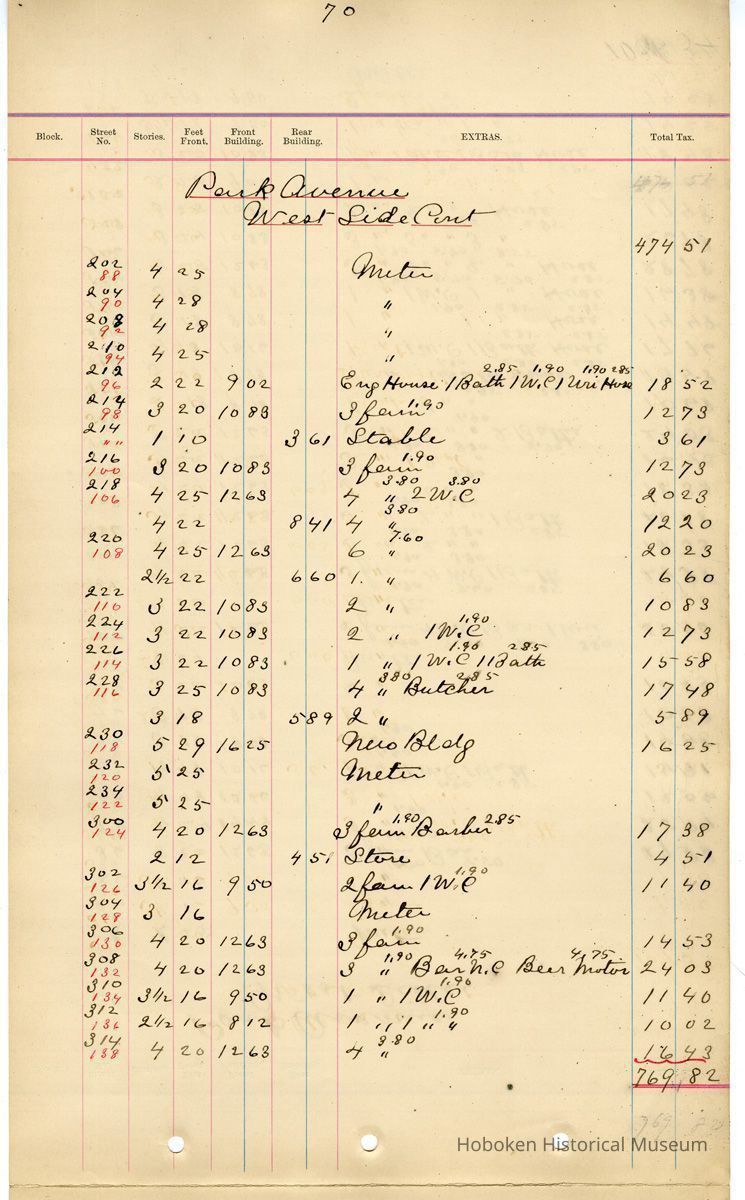 70
Block. Street No. Stories. Feet Front. Front Building. Rear Building. EXTRAS. Total Tax.
Park Avenue
West Side Cont
474 51
202 88 4 25 Meter
204 90 4 28 "
208 92 4 28 "
210 94 4 25 "
212 96 2 22 9 02 Eng House 1 Bath 2.85 1 W.C 1.90 1 Uri 1.90 Hose 285 18 52
214 98 3 20 10 83 3 fam 1.90 12 73
214 " " 1 10 3 61 Stable 3 61
216 100 3 20 10 83 3 fam 1.90 12 73
218 106 4 25 12 63 4 " 3.80 2 W.C 3.80 20 23
4 22 8 41 4 " 3.80 12 20
220 108 4 25 12 63 6 " 7.60 20 23
2 1/2 22 6 60 1. " 6 60
222 110 3 22 10 83 2 " 10 83
224 112 3 22 10 83 2 " 1 W.C 1.90 12 73
226 114 3 22 10 83 1 " 1 W.C 1.90 1 Bath 2.85 15 58
228 116 3 25 10 83 4 " 3.80 Butcher 2.85 17 48
3 18 5 89 2 " 5 89
230 118 5 29 16 25 New Bldg 16 25
232 120 5 25 Meter
234 122 5 25 "
300 124 4 20 12 63 3 fam 1.90 Barber 2.85 17 38
2 12 4 51 Store 4 51
302 126 3 1/2 16 9 50 2 fam 1 W.C 1.90 11 40
304 128 3 16 Meter
306 130 4 20 12 63 3 fam 1.90 14 53
308 132 4 20 12 63 3 " 1.90 Bar N.C 4.75 Beer Motor 4.75 24 03
310 134 3 1/2 16 9 50 1 " 1 W.C 1.90 11 40
312 136 2 1/2 16 8 12 1 " 1 " " 1.90 10 02
314 138 4 20 12 63 4 " 3.80 16 43
769 82
Hoboken Historical Museum